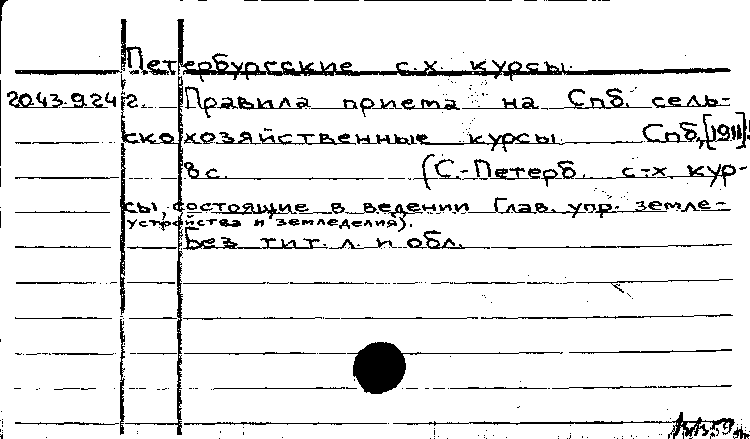 Петербургские с.х. курсы.
20.43.9.24 г. Правила приема на Спб. сель-
скохозяйственные курсы. Спб, [1911].
8 с. (С.-Петерб. с-х. кур-
сы, состоящие в ведении Глав. упр. земле-
устройства и земледелия).
Без тит. л. и обл.